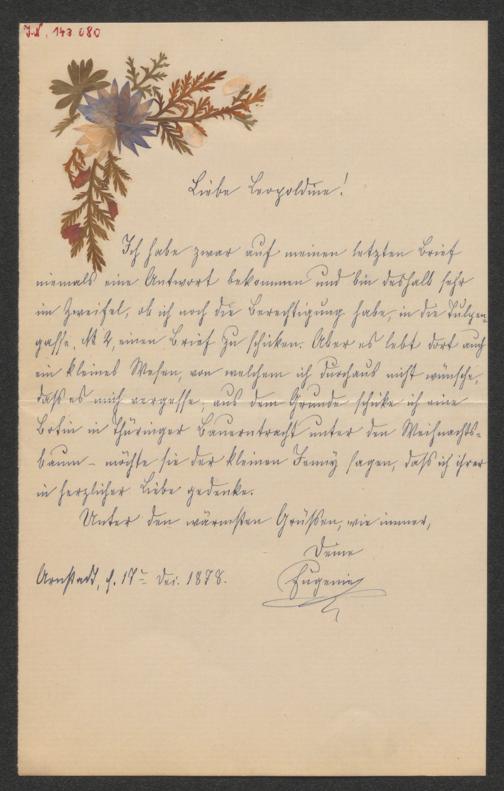 I.N. 143 080
Liebe Leopoldine!
Ich habe zwar auf meinen letzten Brief
niemals eine Antwort bekommen und bin deshalb sehr
im Zweifel, ob ich noch die Berechtigung habe, in die Tulpen-
gasse, № 2, einen Brief zu schicken. Aber es lebt dort auch
ein kleines Wesen, von welchem ich durchaus nicht wünsche,
daß es mich vergesse; aus dem Grunde schicke ich eine
Botin in Thüringer Bauerntracht unter den Weihnachts-
baum – möchte sie der kleinen Jenny sagen, daß ich ihrer
in herzlicher Liebe gedenke.
Unter den wärmsten Grüßen, wie immer,
Deine
Eugenie
Arnstadt, d. 17. Dez. 1878.